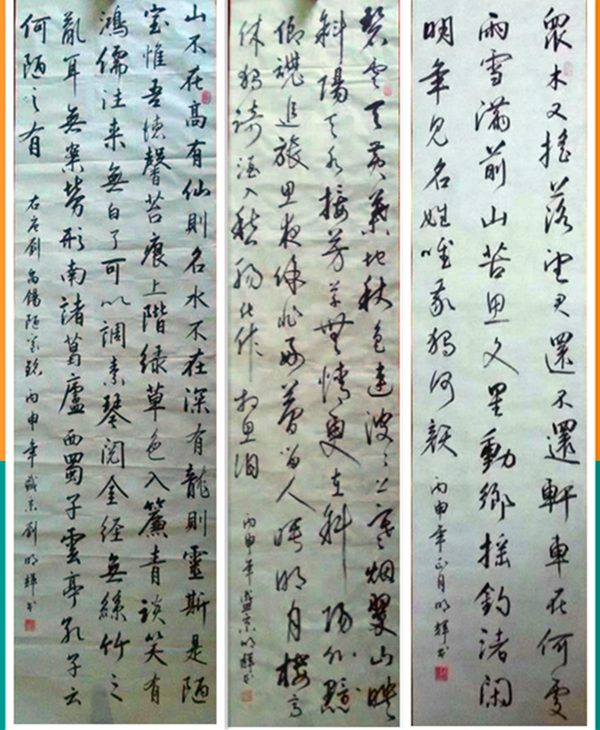 眾木又搖落望君還不還軒車在何處
雨雪滿前山苦思文星動鄉搖釣渚閑
明年見名姓唯我獨何顏
丙申年正月明輝書
碧雲天黃葉地秋色連波々上寒烟翠山映
斜陽天水接芳草無情更在斜陽外黯
鄉魂追旅思夜除非好夢留人睡明月樓高
休獨倚酒入愁腸化作相思淚
丙申年盛京明輝書
山不在高有仙則名水不在深有龍則靈斯是陋
室惟吾德馨苔痕上階綠草色入簾青談笑有
鴻儒往來無白丁可以調素琴閱金經無絲竹之
亂耳無案勞形南諸葛廬西蜀子雲亭孔子云
何陋之有
右唐劉禹錫陋室銘丙申年盛京劉明輝書